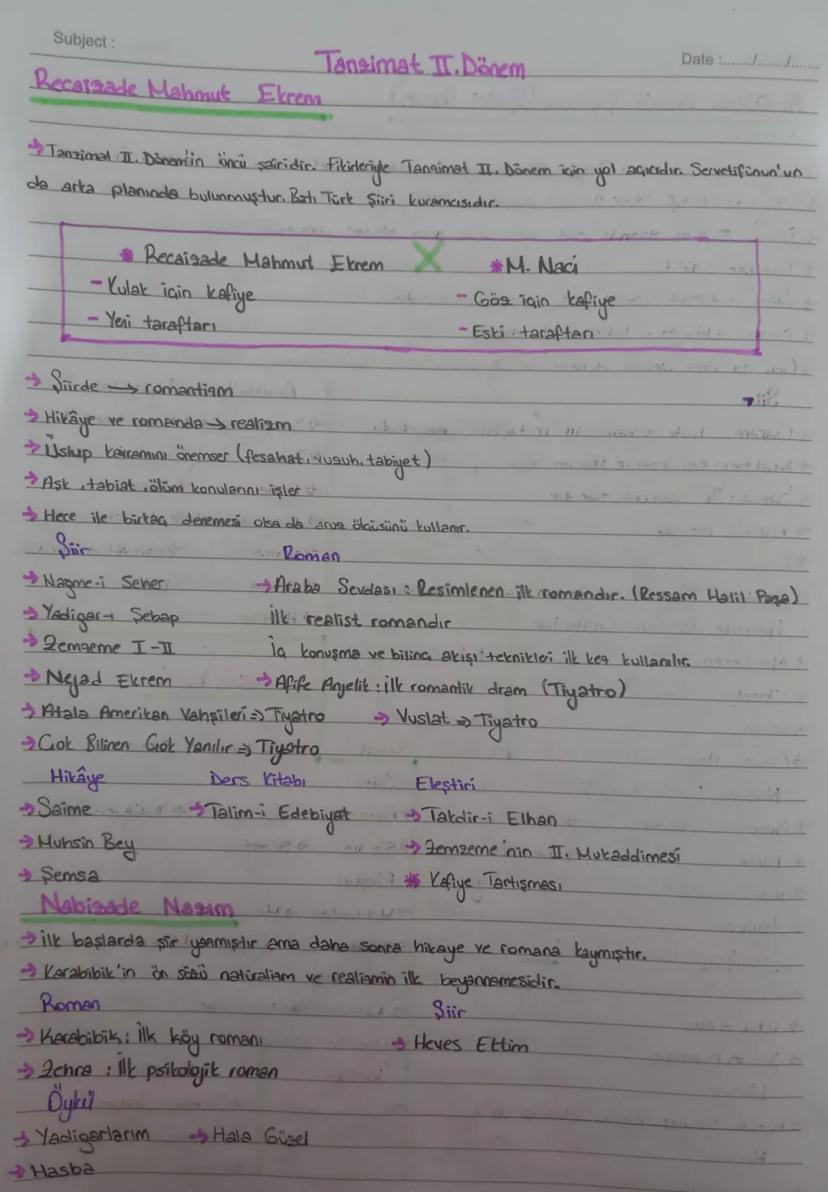 Subject :
Tanzimat II. Dönem
Date :......./......./.......
Recaizade Mahmut Ekrem
→ Tanzimat II. Dönem'in öncü şairidir. Fikirleriyle Tanzimat II. Dönem için yol açıcıdır. Servetifünun'un
da arka planında bulunmuştur. Batı Türk Şiiri kuramcısıdır.
* Recaizade Mahmut Ekrem X * M. Naci
- Kulak için kafiye - Göz için kafiye
- Yeni taraftarı - Eski taraftarı
→ Şiirde → romantizm
→ Hikâye ve romanda → realizm
→ Üslup kavramını önemser (fesahat, vusuh, tabiyet)
→ Aşk, tabiat, ölüm konularını işler
→ Hece ile birkaç denemesi olsa da aruz ölçüsünü kullanır.
Şiir Roman
→ Nağme-i Seher → Araba Sevdası : Resimlenen ilk romandır. (Ressam Halil Paşa)
→ Yadigar-ı Şebap İlk realist romandır
→ Zemzeme I-II İç konuşma ve bilinç akışı teknikleri ilk kez kullanılır.
→ Nejad Ekrem → Afife Anjelik : ilk romantik dram (Tiyatro)
→ Atala Amerikan Vahşileri ⇒ Tiyatro → Vuslat ⇒ Tiyatro
→ Çok Bilinen Çok Yanılır ⇒ Tiyatro
Hikâye Ders Kitabı Eleştiri
→ Saime → Talim-i Edebiyat → Takdir-i Elhan
→ Muhsin Bey → Zemzeme'nin II. Mukaddimesi
→ Şemsa * Kafiye Tartışması
Nabizade Nazım
→ ilk başlarda şiir yazmıştır ama daha sonra hikaye ve romana kaymıştır.
→ Karabibik'in ön sözü natüralizm ve realizmin ilk beyannamesidir.
Roman Şiir
→ Karabibik : İlk köy romanı → Heves Ettim
→ Zehra : İlk psikolojik roman
Öykü
→ Yadigarlarım → Hala Güzel
→ Hasba